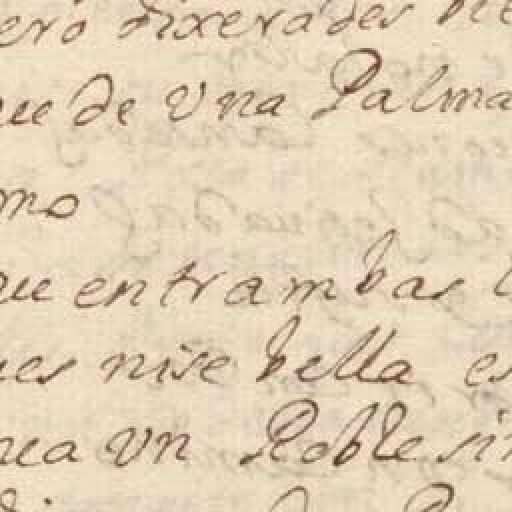 ero dixerades bie
ue de Vna Palma
mo
ue entrambas l
ues nise bella es
nca Vn Roble sin